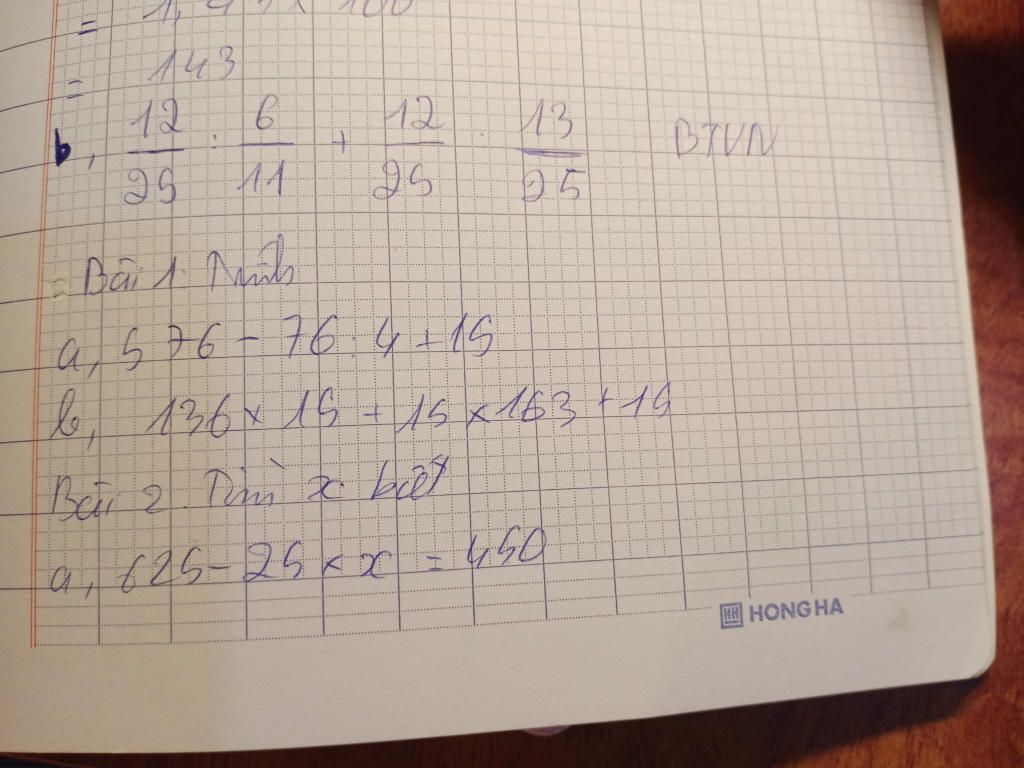 = 1,43 x 100
= 143
b, 12/25 : 6/11 + 12/25 : 13/25 BTVN
Bài 1. Tính
a, 576 - 76 : 4 + 15
b, 136 x 15 + 15 x 163 + 15
Bài 2. Tìm x biết
a, 625 - 25 x x = 450
HONG HA